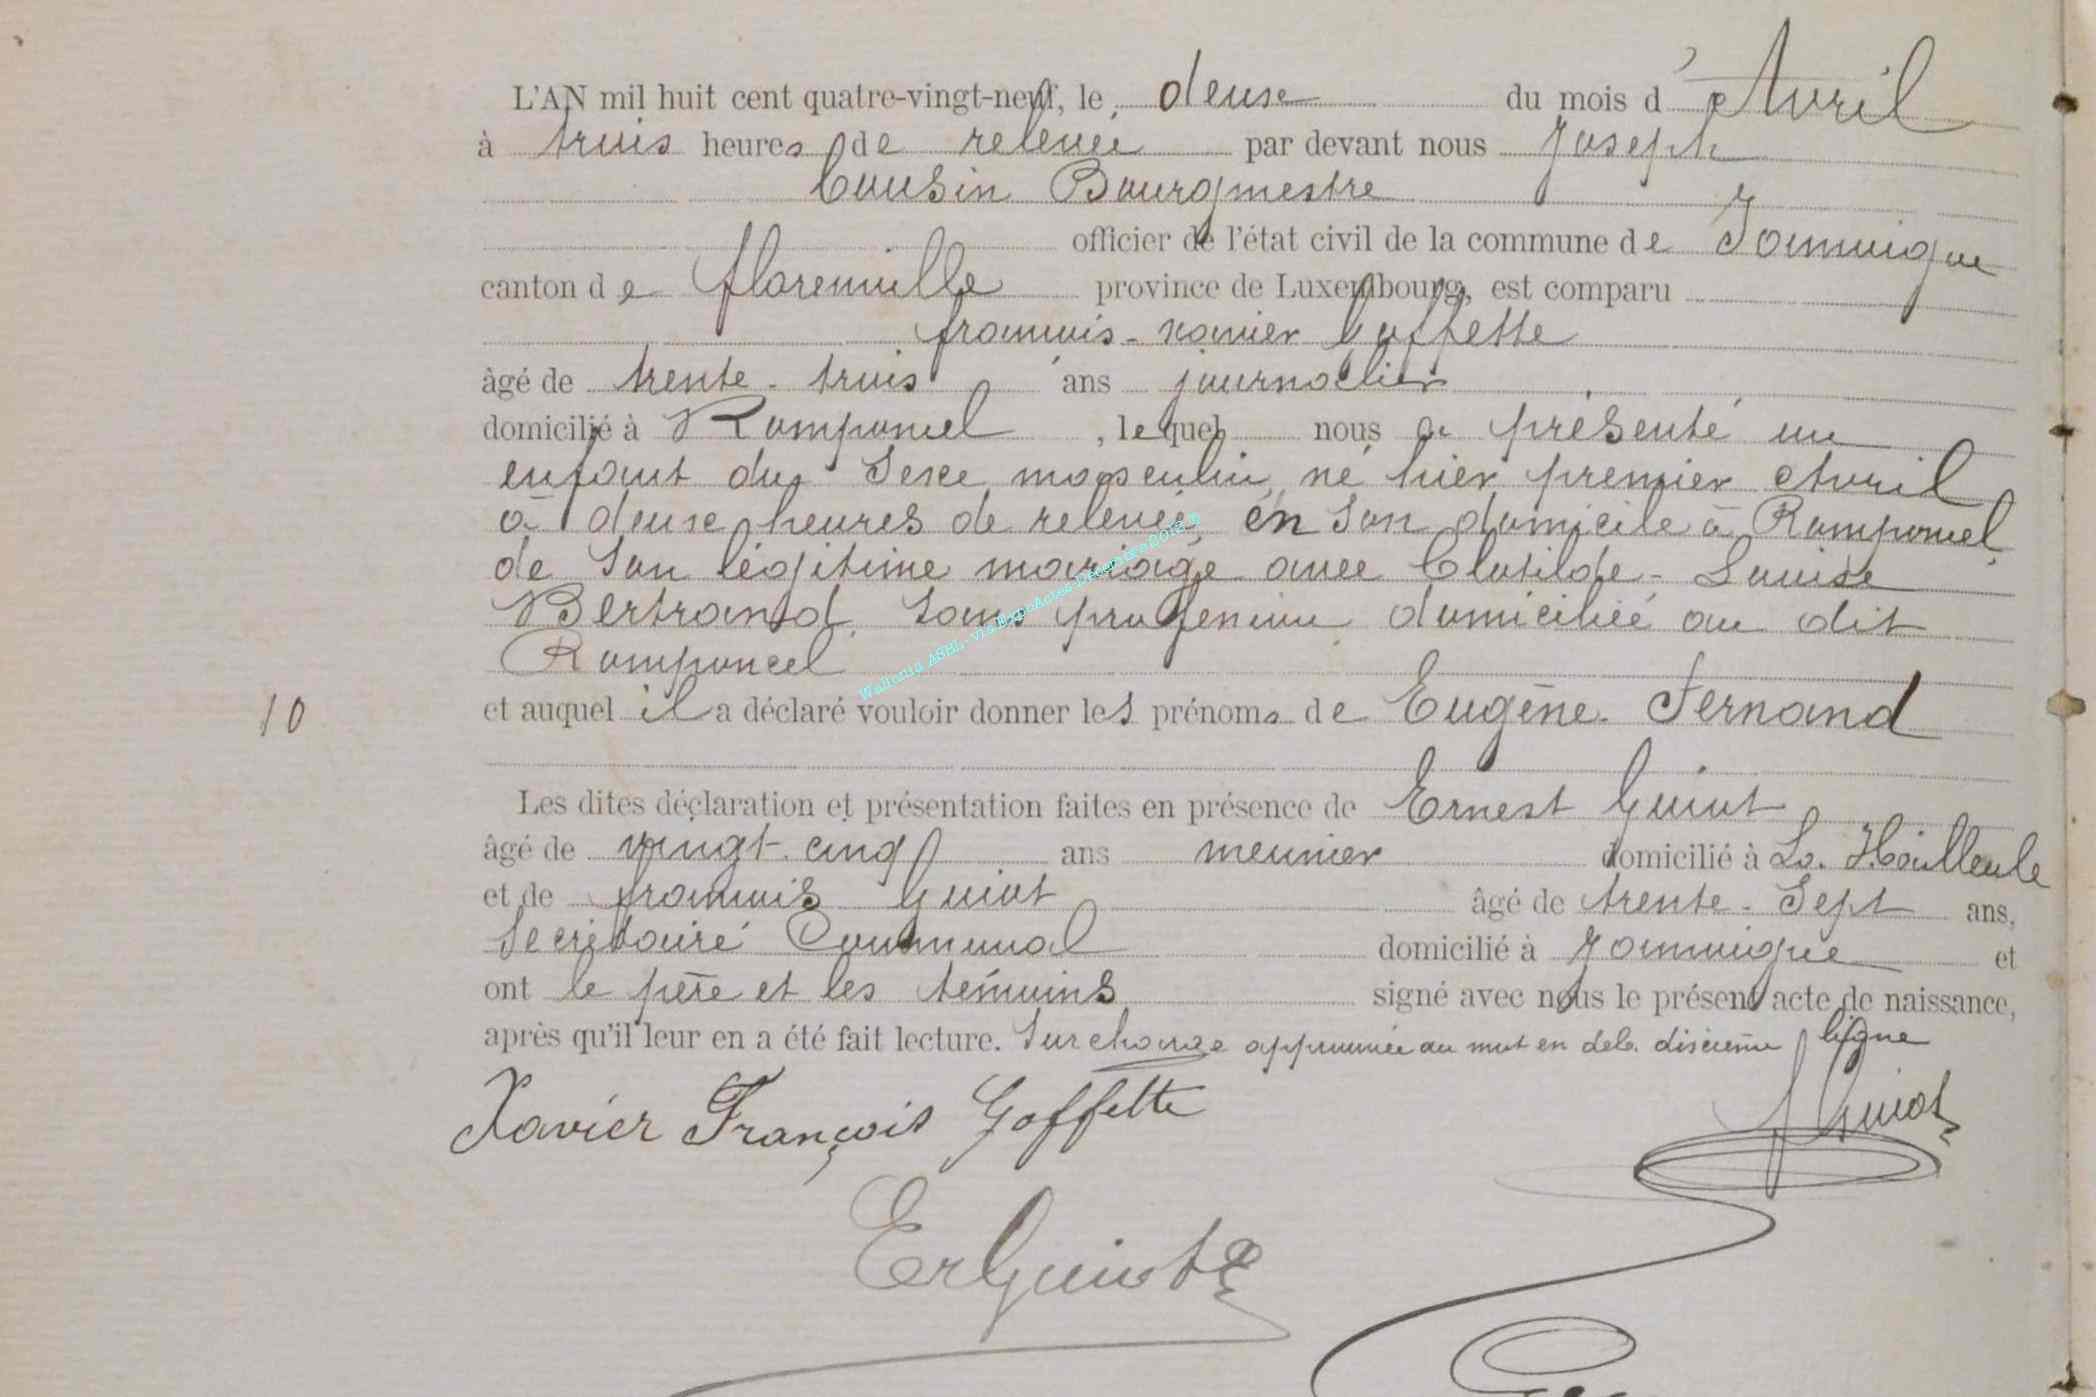 L'AN mil huit cent quatre-vingt-neuf, le deux du mois d'Avril
à trois heures de relevée par devant nous Joseph
Cousin Bourgmestre
officier de l'état civil de la commune de Jamoigne
canton de florenville province de Luxembourg, est comparu
françois-xavier Goffette
âgé de trente-trois ans journalier
domicilié à Romponcel, lequel nous a présenté un
enfant du Sexe masculin, né hier premier Avril
à deux heures de relevée, en Son domicile à Romponcel
de Son légitime mariage avec Clotilde-Louise
Bertrand, Sans profession domiciliée au dit
Romponcel
10 et auquel il a déclaré vouloir donner les prénoms de Eugène-Fernand
Les dites déclaration et présentation faites en présence de Ernest Guiot
âgé de vingt-cinq ans meunier domicilié à La Hailleule
et de françois Guiot âgé de trente-Sept ans,
Secrétaire Communal domicilié à Jamoigne et
ont le père et les témoins signé avec nous le présent acte de naissance,
après qu'il leur en a été fait lecture. Surcharge approuvée au mot en de la dixième ligne
Xavier François Goffette
f Guiot
Er Guiot
Wallonia ASBL, via ExpoActes